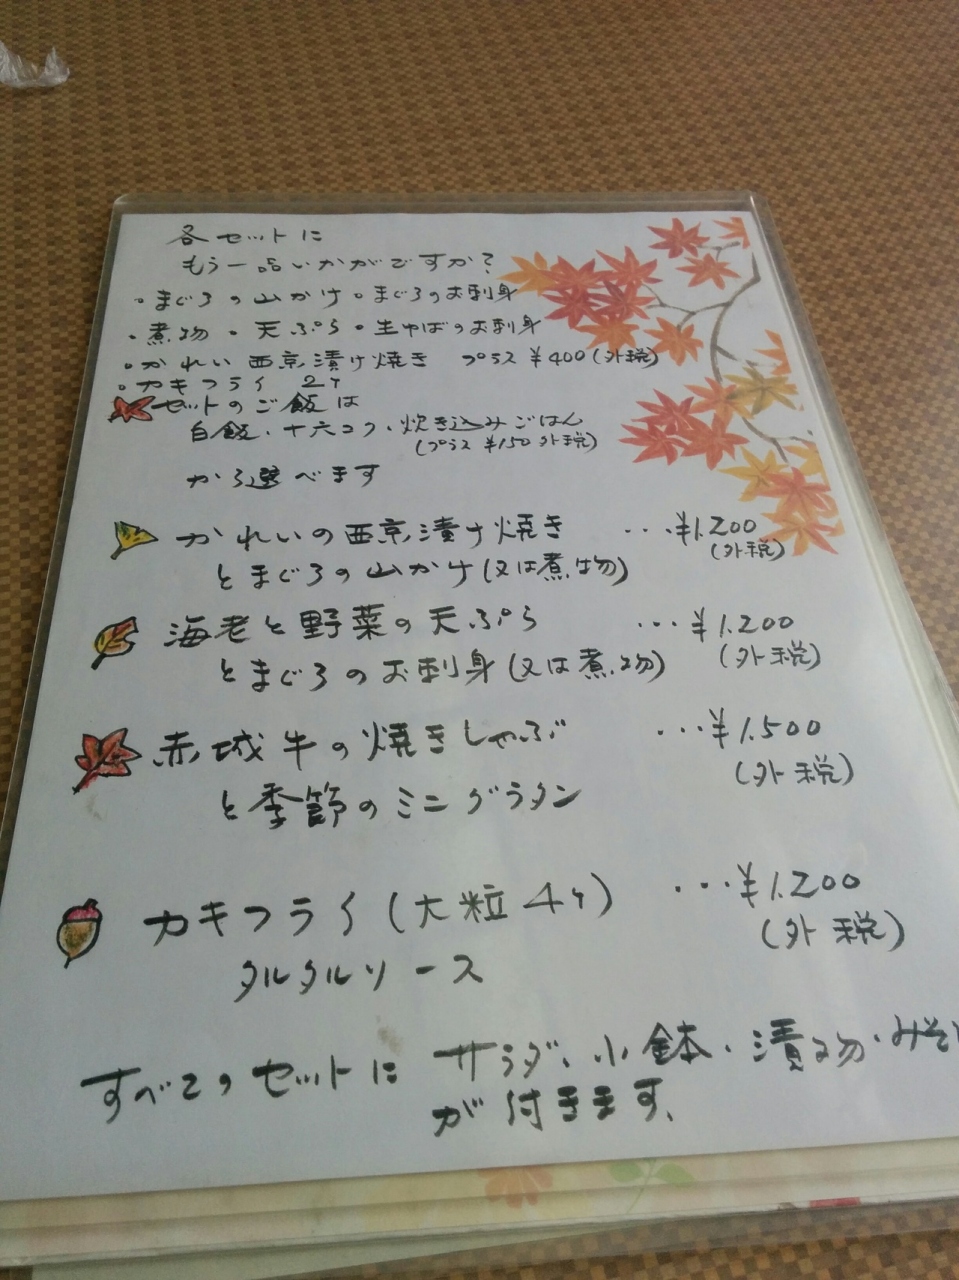 各セットに
もう一品いかがですか?
・まぐろの山かけ・まぐろのお刺身
・煮物・天ぷら・生ゆばのお刺身
・かれい西京漬け焼き プラス ¥400(外税)
・カキフライ 2ケ
セットのご飯は
白飯・十六コク・炊き込みごはん
(プラス ¥150 外税)
から選べます
かれいの西京漬け焼き ・・・¥1.200
とまぐろの山かけ(又は煮物) (外税)
海老と野菜の天ぷら ・・・¥1.200
とまぐろのお刺身(又は煮物) (外税)
赤城牛の焼きしゃぶ ・・・¥1.500
(外税)
と季節のミニグラタン
カキフライ(大粒4ケ) ・・・¥1.200
(外税)
タルタルソース
すべてのセットに サラダ、小鉢・漬け物・みそ
が付きます、